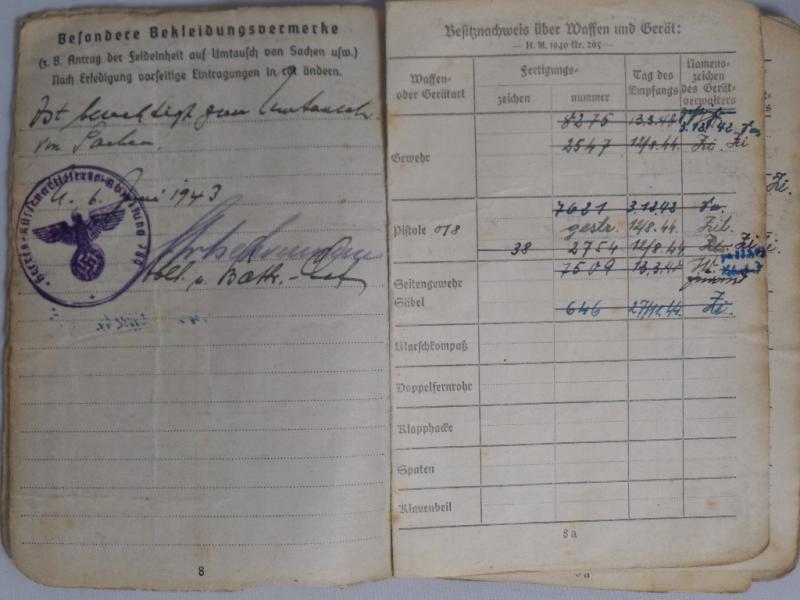 Besondere Bekleidungsvermerke
(z. B. Antrag der Feldeinheit auf Umtausch von Sachen usw.)
Nach Erledigung vorseitige Eintragungen in rot ändern.
Ist berechtigt zum Umtausch
von Sachen.
6. Juni 1943
8
Besitznachweis über Waffen und Gerät:
— H. M. 1940 Nr. 205 —
Waffen- oder Gerätart
Fertigungs-
zeichen
nummer
Tag des Empfangs
Namens- zeichen des Gerät- verwalters
Gewehr
8275 13.3.43
2547 12/8.44. Zi. Zi
7621 3.12.43
Pistole 0/8 gestr. 12/8.44.
38 2754 12/8.44 Zi.
Seitengewehr 7509 13.3.43
Säbel 646 27/11.44 Zi.
Marschkompaß
Doppelfernrohr
Klapphacke
Spaten
Klauenbeil
8a
Zi.